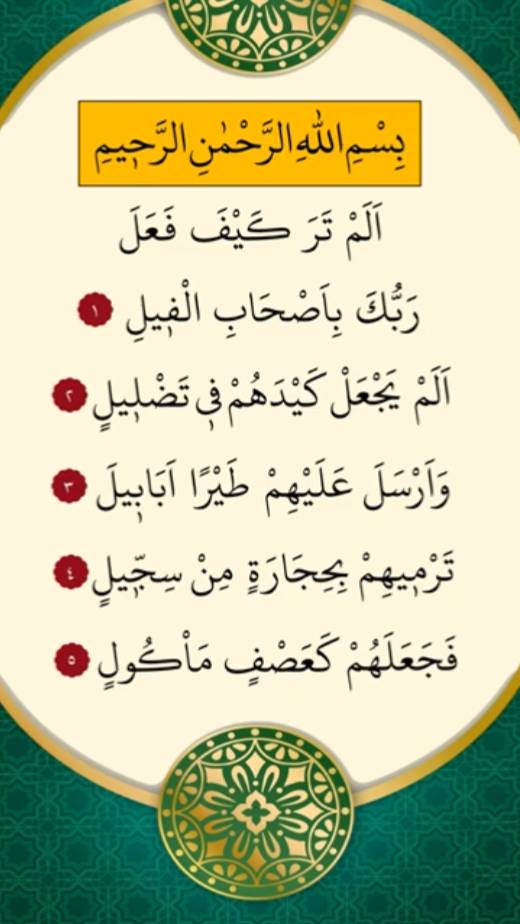 بِسْمِ اللّٰهِ الرَّحْمٰنِ الرَّح۪يمِ
اَلَمْ تَرَ كَيْفَ فَعَلَ
رَبُّكَ بِاَصْحَابِ الْف۪يلِ ١
اَلَمْ يَجْعَلْ كَيْدَهُمْ ف۪ي تَضْل۪يلٍ ٢
وَاَرْسَلَ عَلَيْهِمْ طَيْرًا اَبَاب۪يلَ ٣
تَرْم۪يهِمْ بِحِجَارَةٍ مِنْ سِجّ۪يلٍ ٤
فَجَعَلَهُمْ كَعَصْفٍ مَاْكُولٍ ٥